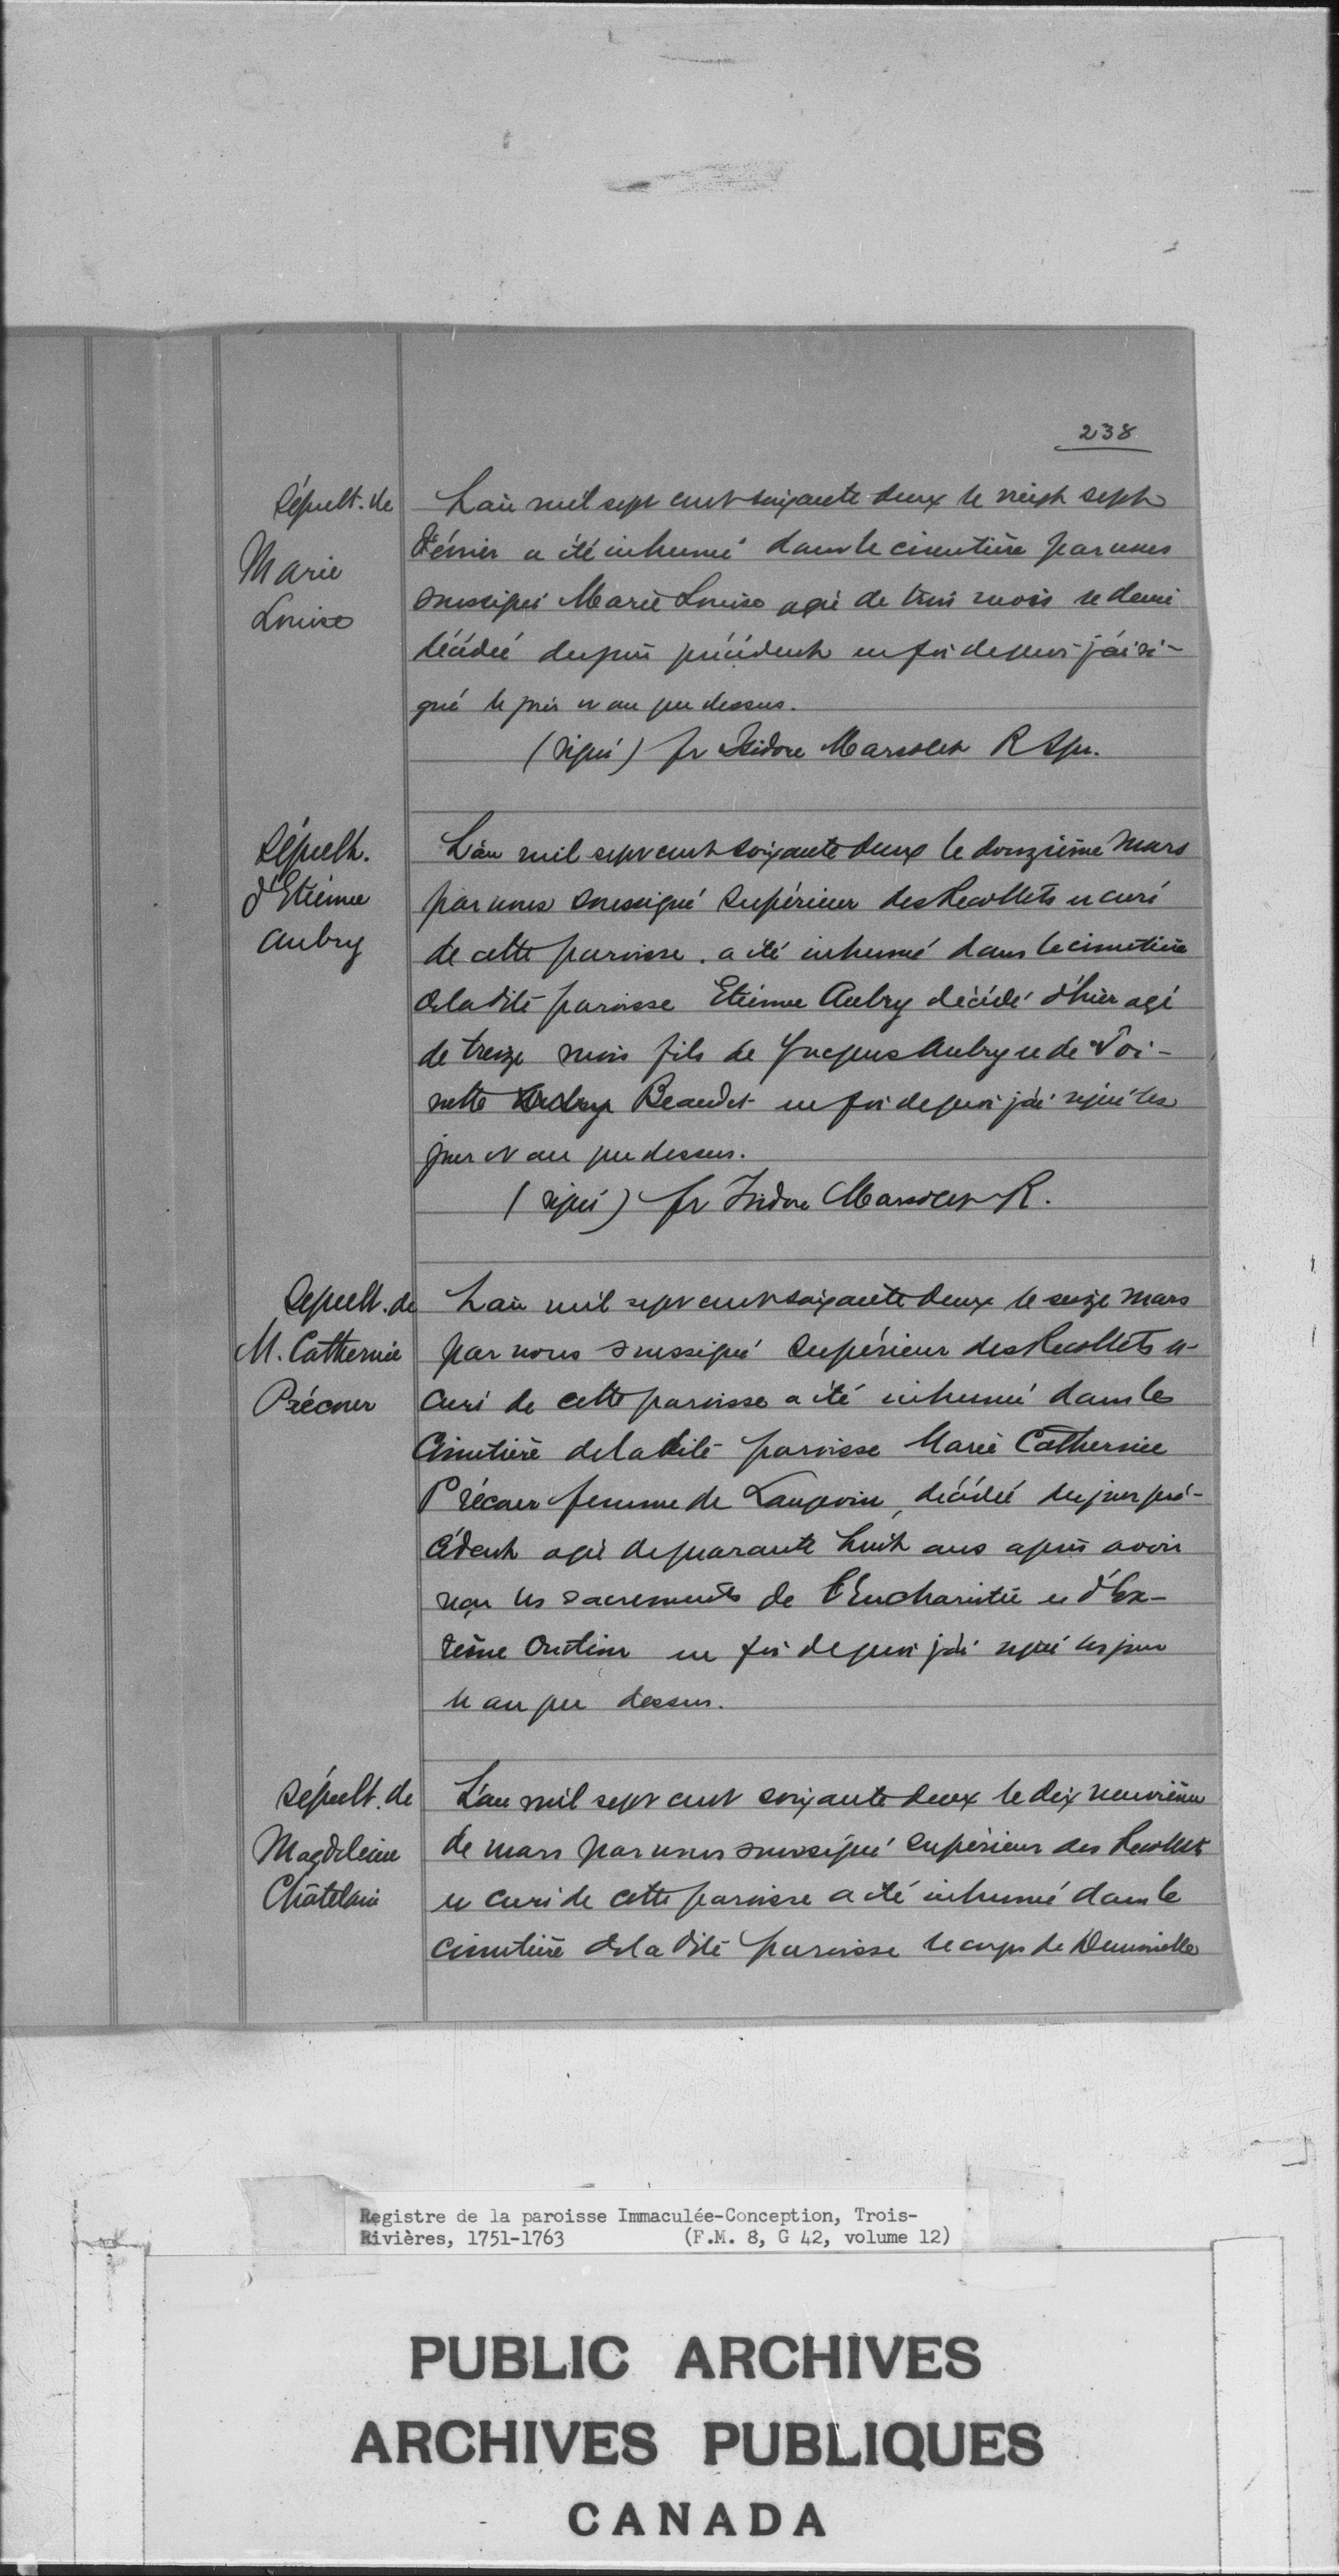 238
Sépult. de
Marie
Louise
L'an mil sept cent soixante deux le vingt sept
Février a été inhumé dans le cimetière par nous
soussigné Marie Louise agée de trois mois et demi
décédée du jour précédent en foi de quoi j'ai si-
gné le jour et an que dessus.
(signé) fr Isidore Marsolet R Spr.
Sépult.
d'Etienne
Aubry
L'an mil sept cent soixante deux le douzième Mars
par nous soussigné Supérieur des Recollets et curé
de cette paroisse. a été inhumé dans le cimetière
de la dite paroisse Etienne Aubry décédé d'hier agé
de treize mois fils de Jacques Aubry et de Toi-
nette Aubry Beaudet en foi de quoi j'ai signé les
jour et an que dessus.
(signé) fr Isidore Marsolet R.
Sepult. de
M. Catherine
Précour
L'an mil sept cent soixante deux le seize Mars
par nous soussigné Supérieur des Recollets et
Curé de cette paroisse a été inhumée dans le
Cimetière de la dite paroisse Marie Catherine
Précour femme de Langevin, décédée du jour pré-
cédent agée de quarante huit ans après avoir
reçu les sacrements de l'Eucharistie et d'Ex-
trème Onction en foi de quoi j'ai signé les jour
et an que dessus.
Sépult. de
Magdeleine
Châtelain
L'an mil sept cent soixante deux le dix neuvième
de mars par nous soussigné Supérieur des Recollets
et curé de cette paroisse a été inhumé dans le
Cimetière de la dite paroisse le corps de Demoiselle
Registre de la paroisse Immaculée-Conception, Trois-
Rivières, 1751-1763 (F.M. 8, G 42, volume 12)
PUBLIC ARCHIVES
ARCHIVES PUBLIQUES
CANADA